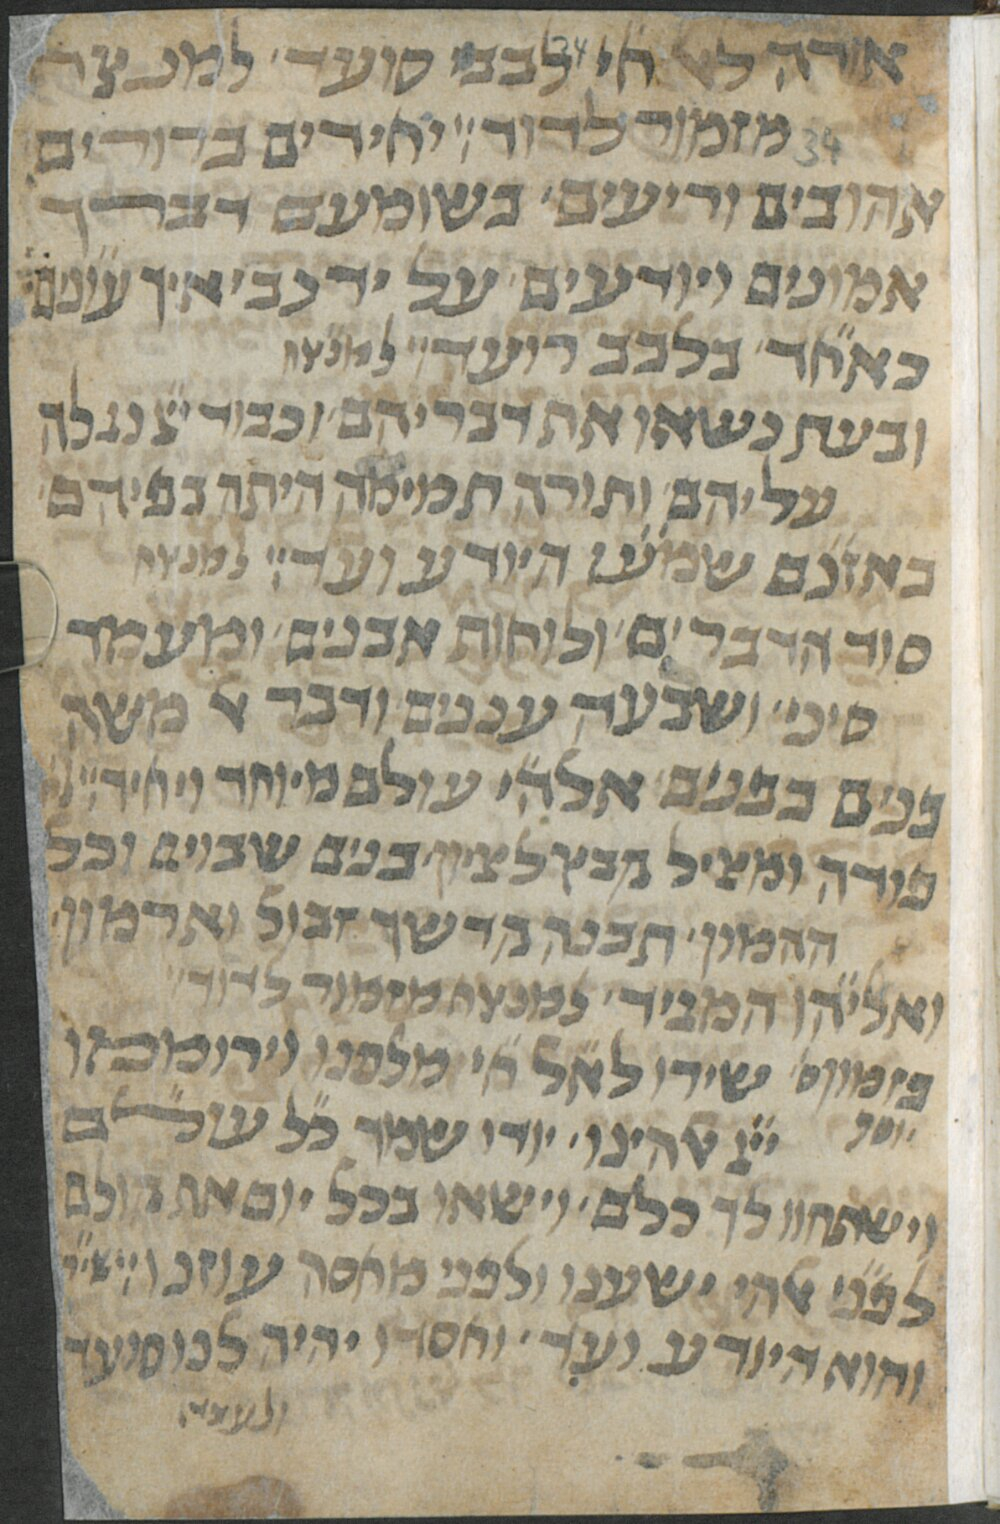 אודה לאל חי לבבי סועד למנצח
מזמור לדוד יחידים ברורים
אהובים וריעים כשומעם דברך
אמונים ויודעים על ידי נביאיך עונים
כאחד בלבב רועד למנצח
ובעת נשאו את דבריהם וכבוד ייי נגלה
עליהם ותורה תמימה היתה בפיהם
באזנם שמעו היודע ועד למנצח
סוד הדברים ולוחות אבנים ומעמד
סיני ושבעה עננים ודבר אל משה
פנים בפנים אלהי עולם מיוחד ויחיד
פודה ומציל קבץ לציון בנים שבוים וכל
ההמון תבנה קדשך זבול וארמון
ואליהו המגיד למנצח מזמור לדוד
פזמון שירו לאל חי מלפנו וירוממו
יוסף ייי אלהינו יודו שמך כל עולם
וישתחוו לך כלם וישאו בכל יום את קולם
לפני אלהי ישענו ולפני מחסה עוזנו
והוא היודע ועד וחסדו יהיה לנו סועד
ולמנצח
34
34